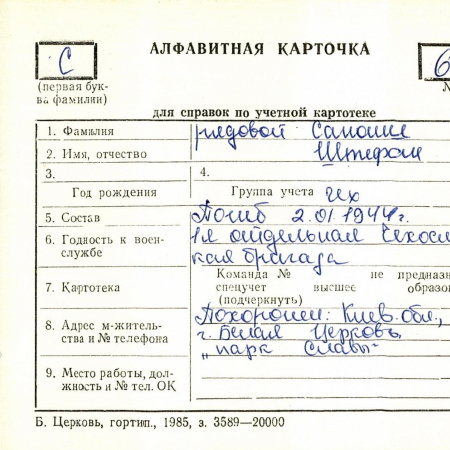 С
АЛФАВИТНАЯ КАРТОЧКА
6
(первая бук-
ва фамилии)
№
для справок по учетной картотеке
1. Фамилия рядовой
2. Имя, отчество Штефан
3. 4.
Год рождения Группа учета чех
5. Состав Погиб 2.01.1944г.
6. Годность к воен- 1я отдельная Чехосл
службе кая бригада
Команда № не предназн
7. Картотека спецучет высшее образо
(подчеркнуть)
8. Адрес м-житель- Похоронен: Киев. обл.,
ства и № телефона г. Белая Церковь
„парк Славы"
9. Место работы, дол-
жность и № тел. ОК
Б. Церковь, гортип., 1985, з. 3589—20000